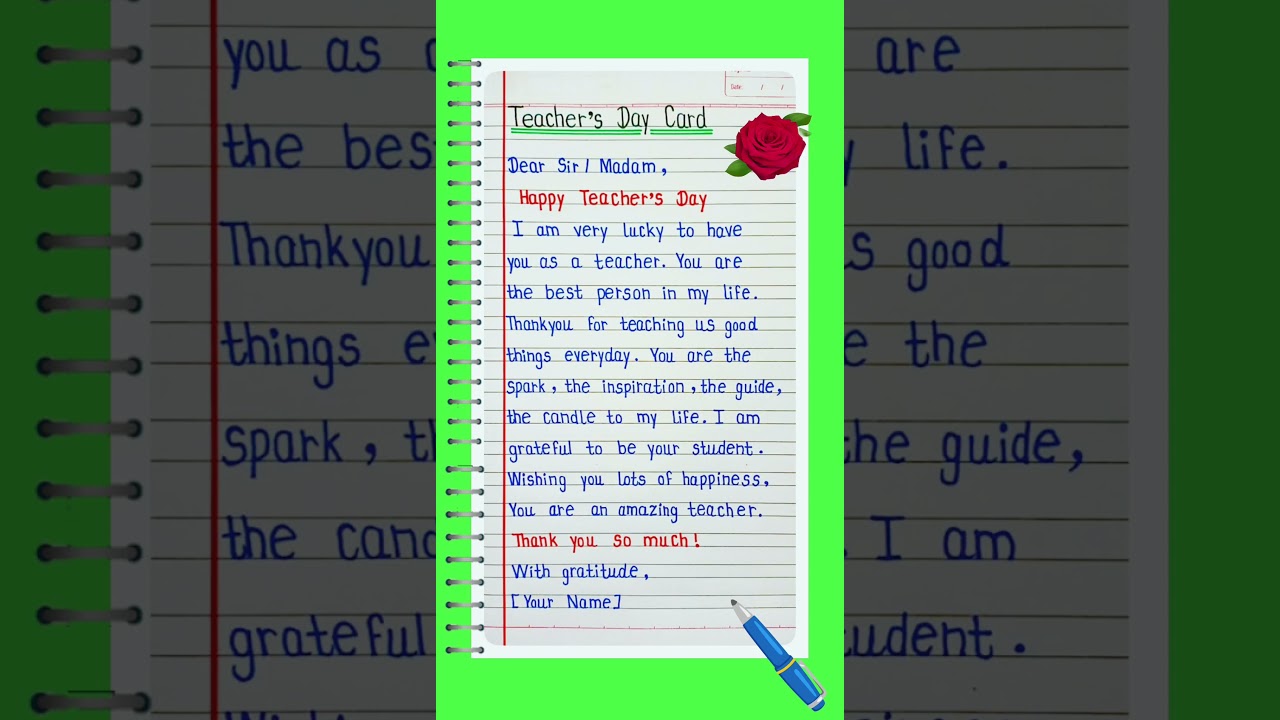 Date: / /
Teacher's Day Card
Dear Sir / Madam,
Happy Teacher's Day
I am very lucky to have
you as a teacher. You are
the best person in my life.
Thankyou for teaching us good
things everyday. You are the
spark, the inspiration, the guide,
the candle to my life. I am
grateful to be your student.
Wishing you lots of happiness,
You are an amazing teacher.
Thank you so much!
With gratitude,
[Your Name]